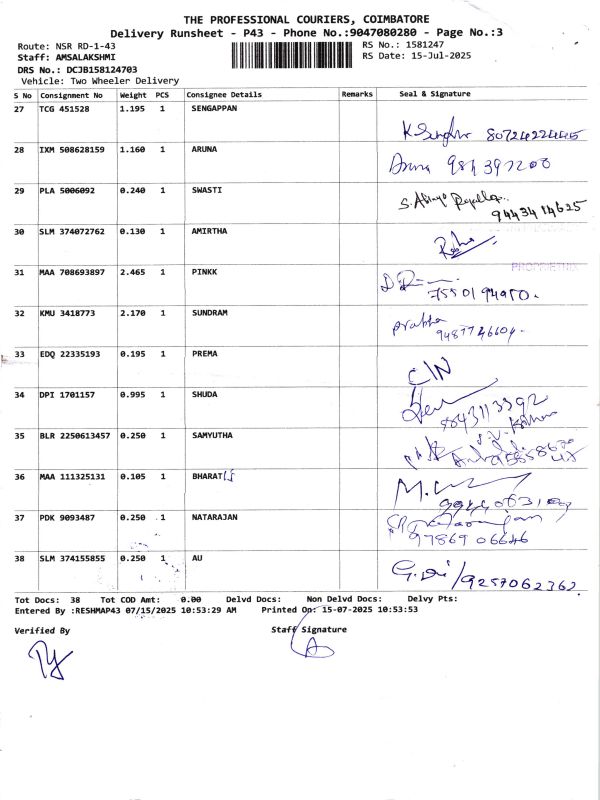 THE PROFESSIONAL COURIERS, COIMBATORE
Delivery Runsheet - P43 - Phone No.:9047080280 - Page No.:3
Route: NSR RD-1-43 RS No.: 1581247
Staff: AMSALAKSHMI RS Date: 15-Jul-2025
DRS No.: DCJB158124703
Vehicle: Two Wheeler Delivery
S No Consignment No Weight PCS Consignee Details Remarks Seal & Signature
27 TCG 451528 1.195 1 SENGAPPAN
28 IXM 508628159 1.160 1 ARUNA
29 PLA 5006092 0.240 1 SWASTI
9443414625
30 SLM 374072762 0.130 1 AMIRTHA
PROPRIETRIX
31 MAA 708693897 2.465 1 PINKK
7550194950.
32 KMU 3418773 2.170 1 SUNDRAM
prabha
9487746604.
33 EDQ 22335193 0.195 1 PREMA
C/N
34 DPI 1701157 0.995 1 SHUDA
9843113392
35 BLR 2250613457 0.250 1 SAMYUTHA
36 MAA 111325131 0.105 1 BHARAT
37 PDK 9093487 0.250 1 NATARAJAN
97869 06646
38 SLM 374155855 0.250 1 AU
/9257062362
Tot Docs: 38 Tot COD Amt: 0.00 Delvd Docs: Non Delvd Docs: Delvy Pts:
Entered By :RESHMAP43 07/15/2025 10:53:29 AM Printed On: 15-07-2025 10:53:53
Verified By Staff Signature